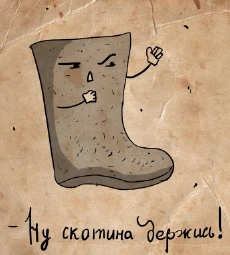 - Ну скотина держись!